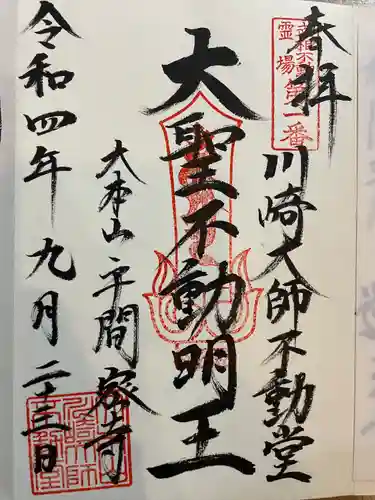 奉拝
霊場
第一番
川崎大師不動堂
大聖不動明王
大本山平間密寺
令和四年九月二十三日